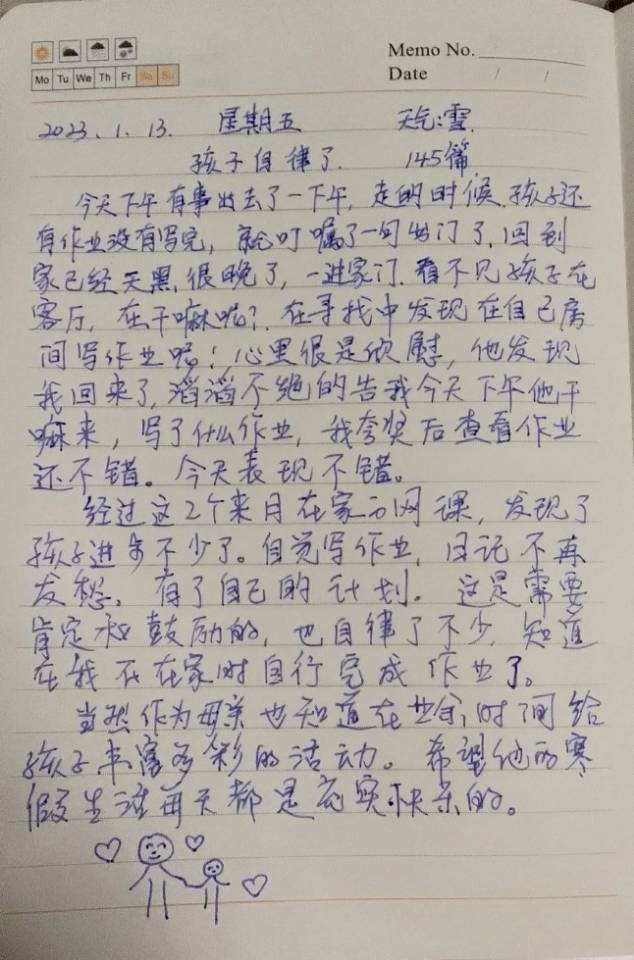 Memo No.
Mo Tu We Th Fr Sa Su
Date / /
2023.1.13. 星期五 天气:雪.
孩子自律了. 145篇
今天下午有事出去了一下午, 走的时候, 孩子还
有作业没有写完, 就叮嘱了一句出门了, 回到
家已经天黑, 很晚了, 一进家门. 看不见孩子在
客厅, 在干嘛呢?. 在寻找中发现在自己房
间写作业呢! 心里很是欣慰, 他发现
我回来了, 滔滔不绝的告我今天下午他干
嘛来, 写了什么作业, 我夸奖后查看作业
还不错。今天表现不错。
经过这2个来月在家的网课, 发现了
孩子进步不少了。自觉写作业, 日记不再
发愁, 有了自己的计划. 这是需要
肯定和鼓励的, 也自律了不少, 知道
在我不在家时自行完成作业了。
当然作为母亲也知道在业余时间给
孩子丰富多彩的活动。希望他的寒
假生活每天都是充实快乐的。